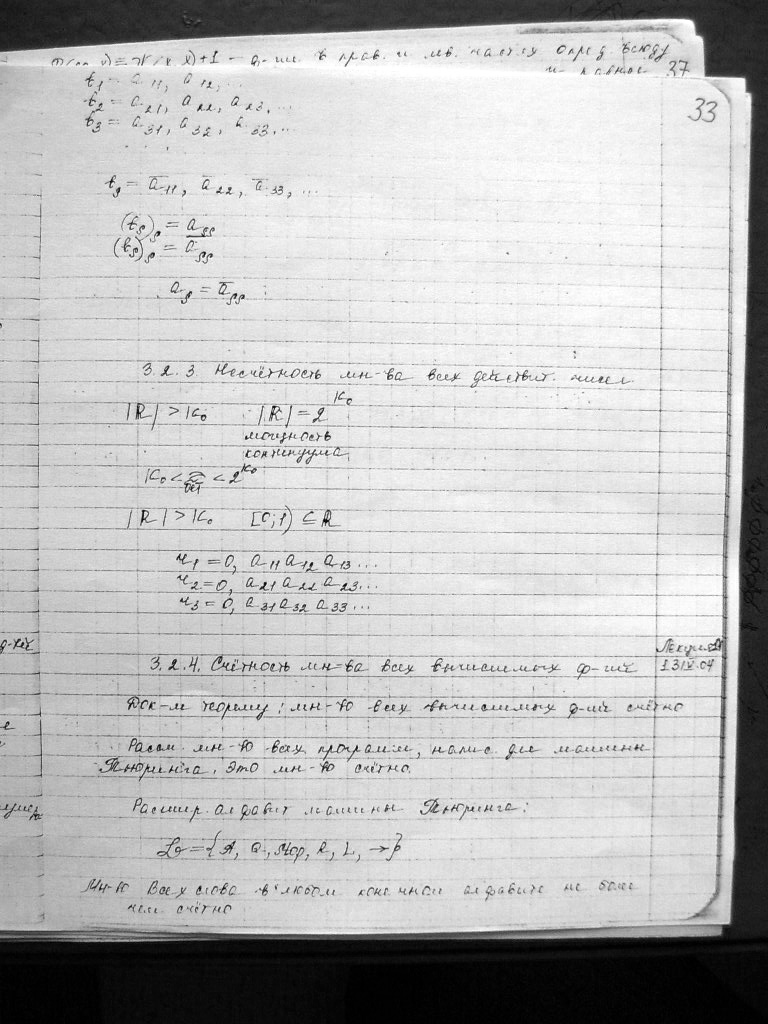 +1 — ф-ции в прав. и лев. частях опред. всюду
и равное 37
33
t₁ = a₁₁, a₁₂, ...
t₂ = a₂₁, a₂₂, a₂₃, ...
t₃ = a₃₁, a₃₂, a₃₃, ...
. . .
t_ρ = a̅₁₁, a̅₂₂, a̅₃₃, ...
(t_ρ)_ρ = a_ρρ
(t_ρ)_ρ = a̅_ρρ
a_ρ = a̅_ρρ
3.2.3. Несчётность мн-ва всех действит. чисел
|R| > ℵ₀ |R| = 2^ℵ₀
мощность
континуума
ℵ₀ < < 2^ℵ₀
|R| > ℵ₀ [0;1) ⊆ R
r₁ = 0, a₁₁ a₁₂ a₁₃ ...
r₂ = 0, a₂₁ a₂₂ a₂₃ ...
r₃ = 0, a₃₁ a₃₂ a₃₃ ...
Лекция
3.2.4. Счётность мн-ва всех вычислимых ф-ций
Док-м теорему: мн-во всех вычислимых ф-ций счётно
Рассм. мн-во всех программ, напис. для машины
Тьюринга. Это мн-во счётно.
Расшир. алфавит машины Тьюринга:
= {A, Q, Stop, R, L, →}
Мн-во всех слова в любом конечном алфавите не более
чем счётно